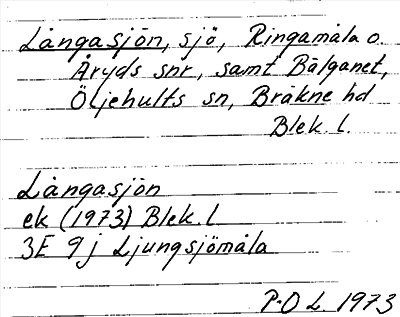 Långasjön, sjö, Ringamåla o.
Åryds snr, samt Bälganet,
Öljehults sn, Bräkne hd
Blek. l.
Långasjön
ek (1973) Blek. l
3E 9j Ljungsjömåla
P.O L. 1973